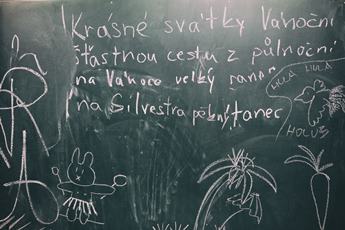 Krásné svátky Vánoční
šťastnou cestu z půlnoční
na Vánoce velký ranec
na Silvestra pěkný tanec
HULÁ HULÁ
HOLUB